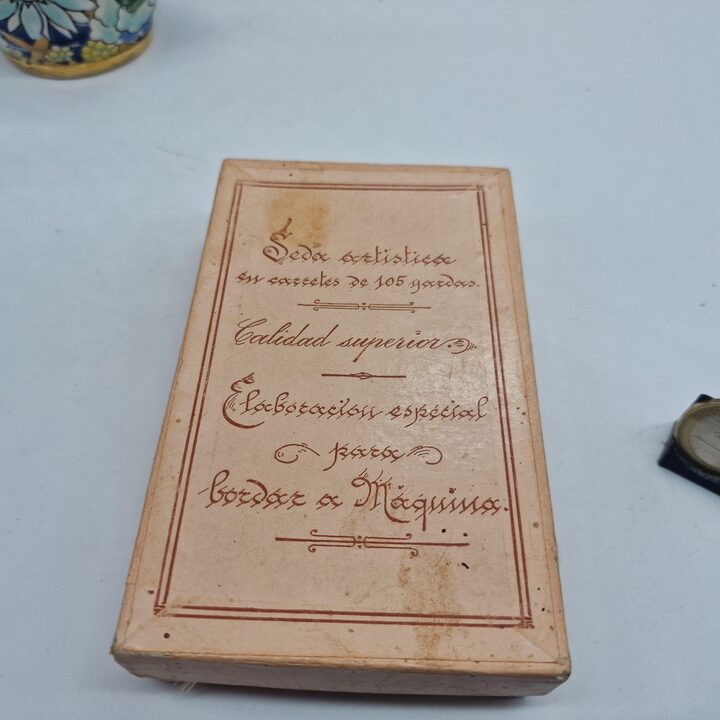 Seda artistica
en carretes de 105 yardas.
Calidad superior
Elaboracion especial
para
bordar a Máquina.